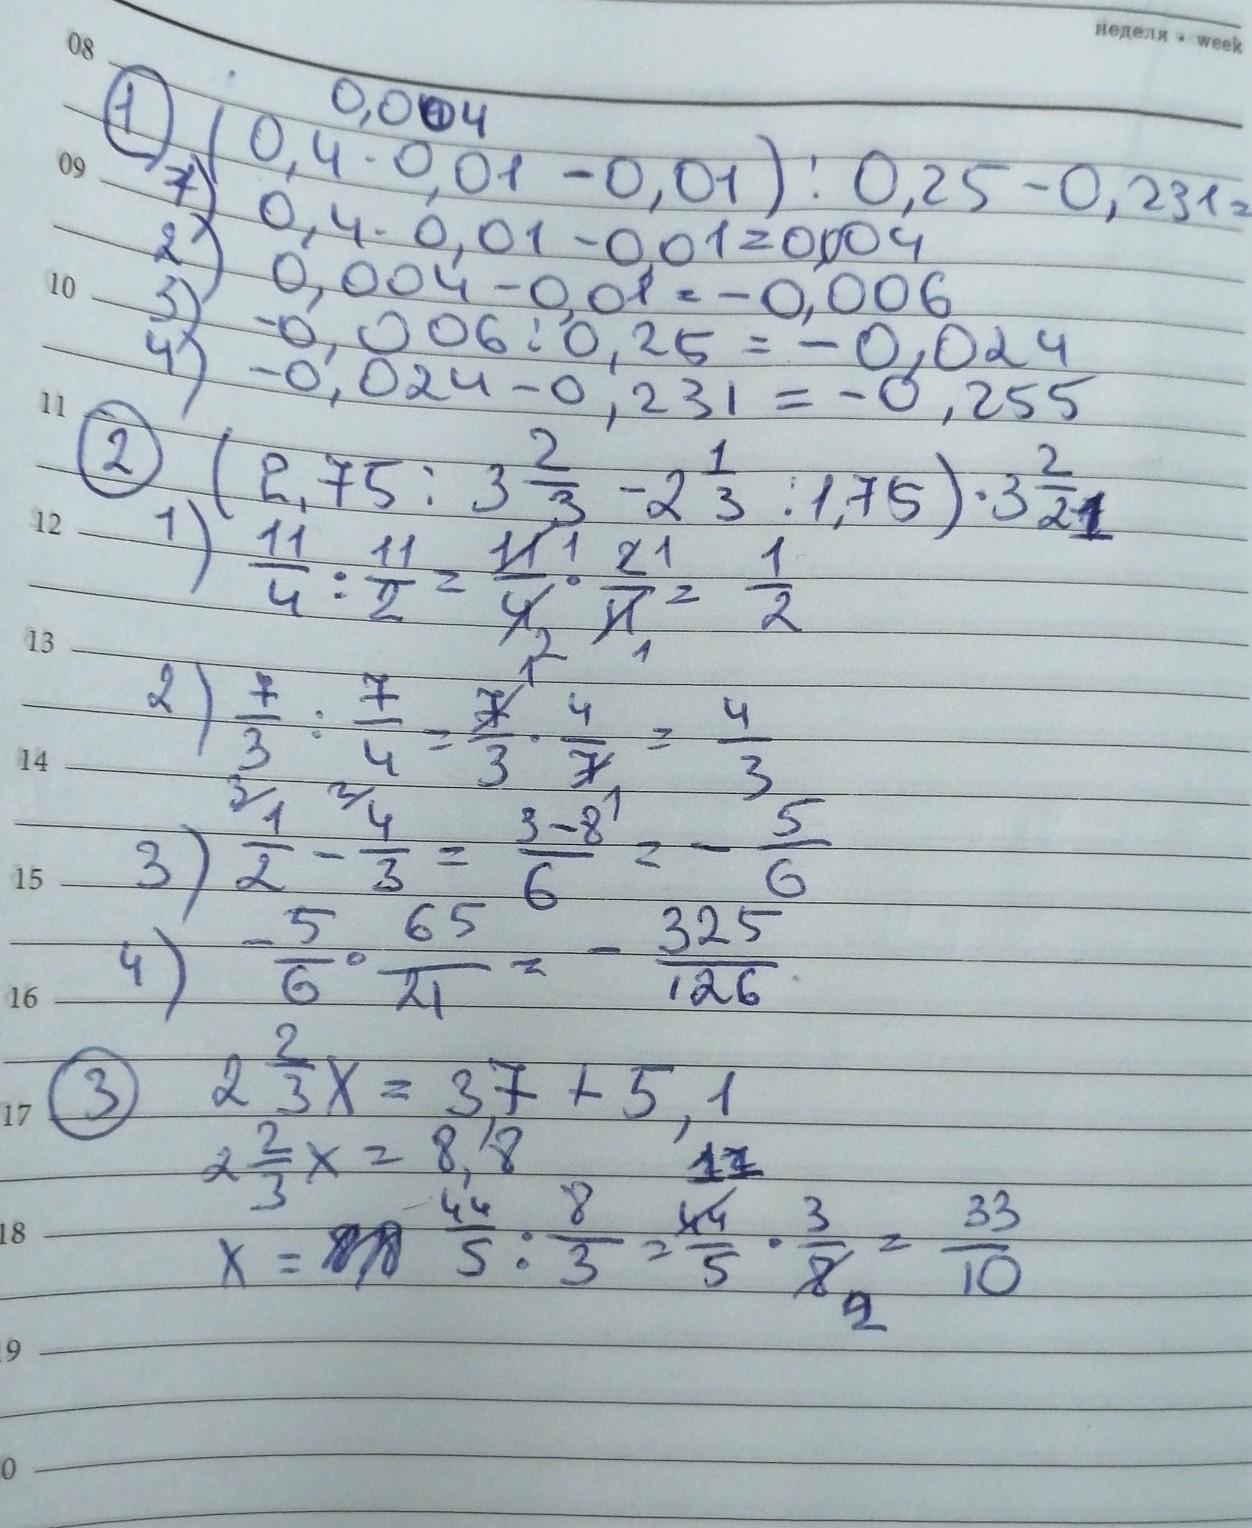 неделя • week
08
0,004
1 (0,4·0,01-0,01):0,25-0,231=
09
1) 0,4·0,01-0,01=0,004
2) 0,004-0,01=-0,006
10
3) -0,006:0,25=-0,024
4) -0,024-0,231=-0,255
11
2 (2,75:3 2/3-2 1/3:1,75)·3 2/21
12
1) 11/4:11/2=11/4·2/11=1/2
1 1
2 1
13
1
2) 7/3:7/4=7/3·4/7=4/3
14
1
3) 3/ 1/2- 2/ 4/3=3-8/6=-5/6
15
4) -5/6·65/21=-325/126
16
3 2 2/3x=3,7+5,1
17
2 2/3x=8,8
11
18
x= 44/5:8/3=44/5·3/8=33/10
2
19
20